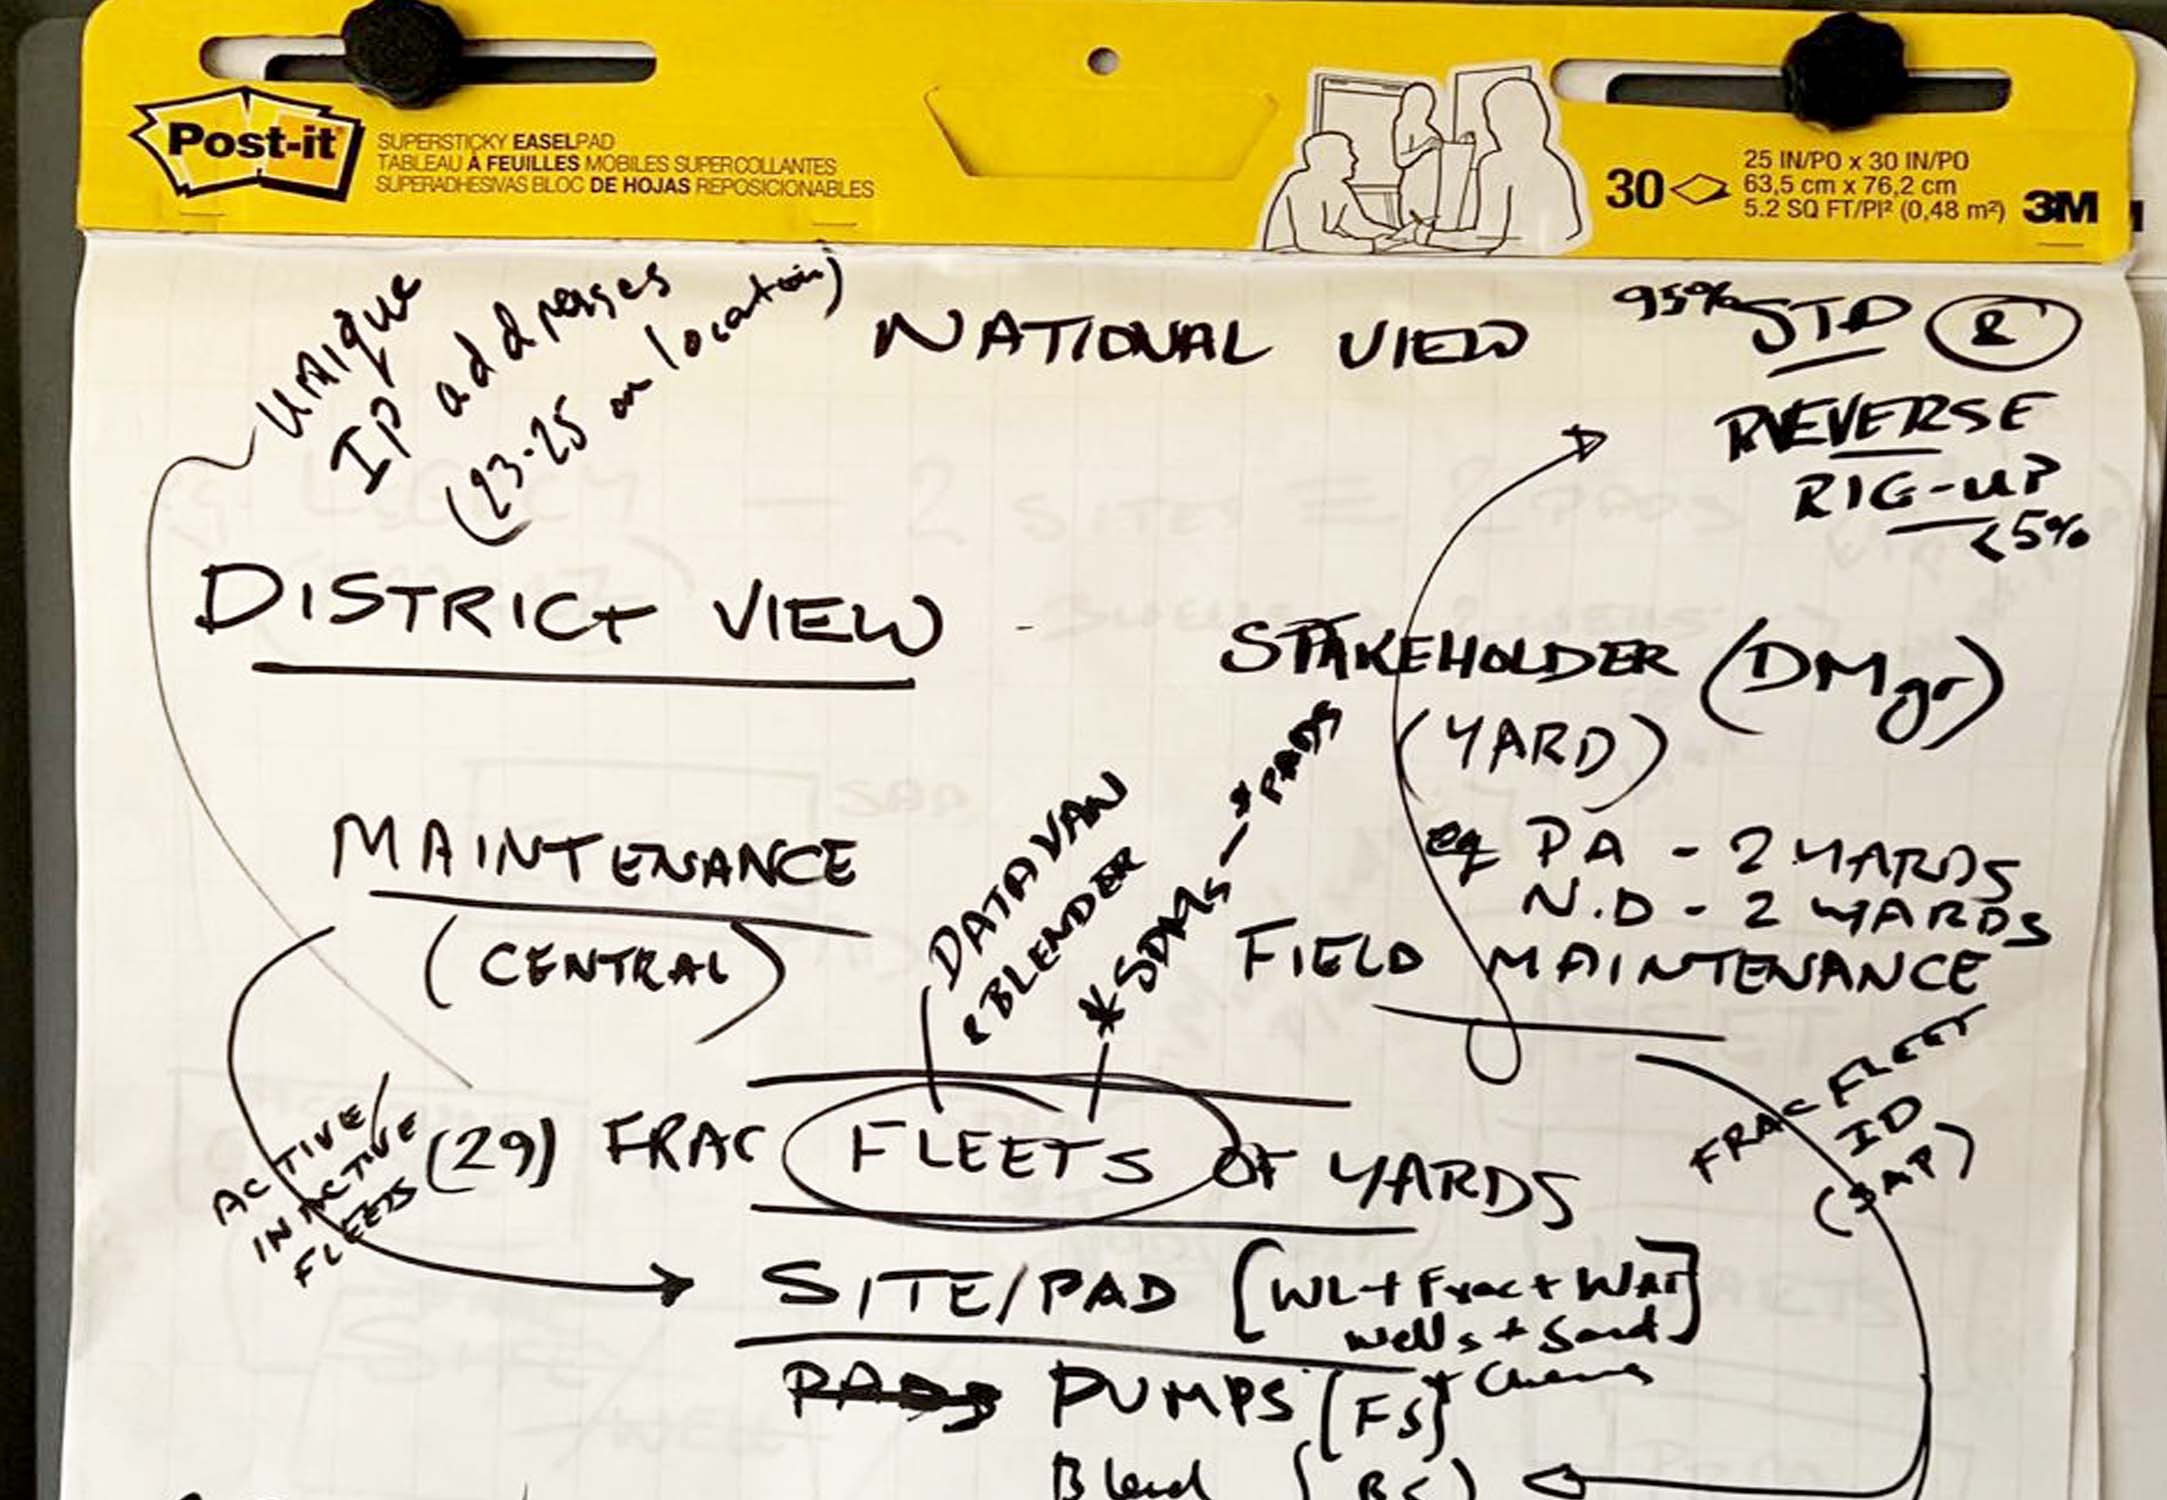 Post-it
SUPERSTICKY EASELPAD
TABLEAU À FEUILLES MOBILES SUPERCOLLANTES
SUPERADHESIVAS BLOC DE HOJAS REPOSICIONABLES
30
25 IN/PO x 30 IN/PO
63,5 cm x 76,2 cm
5.2 SQ FT/PI² (0,48 m²)
3M
UNIQUE
IP addresses
(23-25 on location)
NATIONAL VIEW
95% STD &
REVERSE
RIG-UP
<5%
DISTRICT VIEW
STAKEHOLDER (DMgr)
(YARD)
eg PA - 2 YARDS
N.D - 2 YARDS
MAINTENANCE
(CENTRAL)
DATA VAN
& BLENDER
* SDMs - * PADS
FIELD MAINTENANCE
ACTIVE/
INACTIVE
FLEETS
(29) FRAC FLEETS OF YARDS
FRAC FLEET
ID
(SAP)
SITE/PAD [WL + Frac + Wat]
wells + Sand
+ Chems
PADS PUMPS [FS]
Blend (BS)